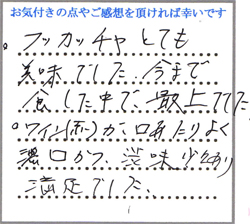 お気付きの点やご感想を頂ければ幸いです
。フッカッチャとても
美味でした。今まで
食した中で、最上でした
。ワイン(赤)が、口あたりよく
濃口かつ、渋味少々あり
満足でした、